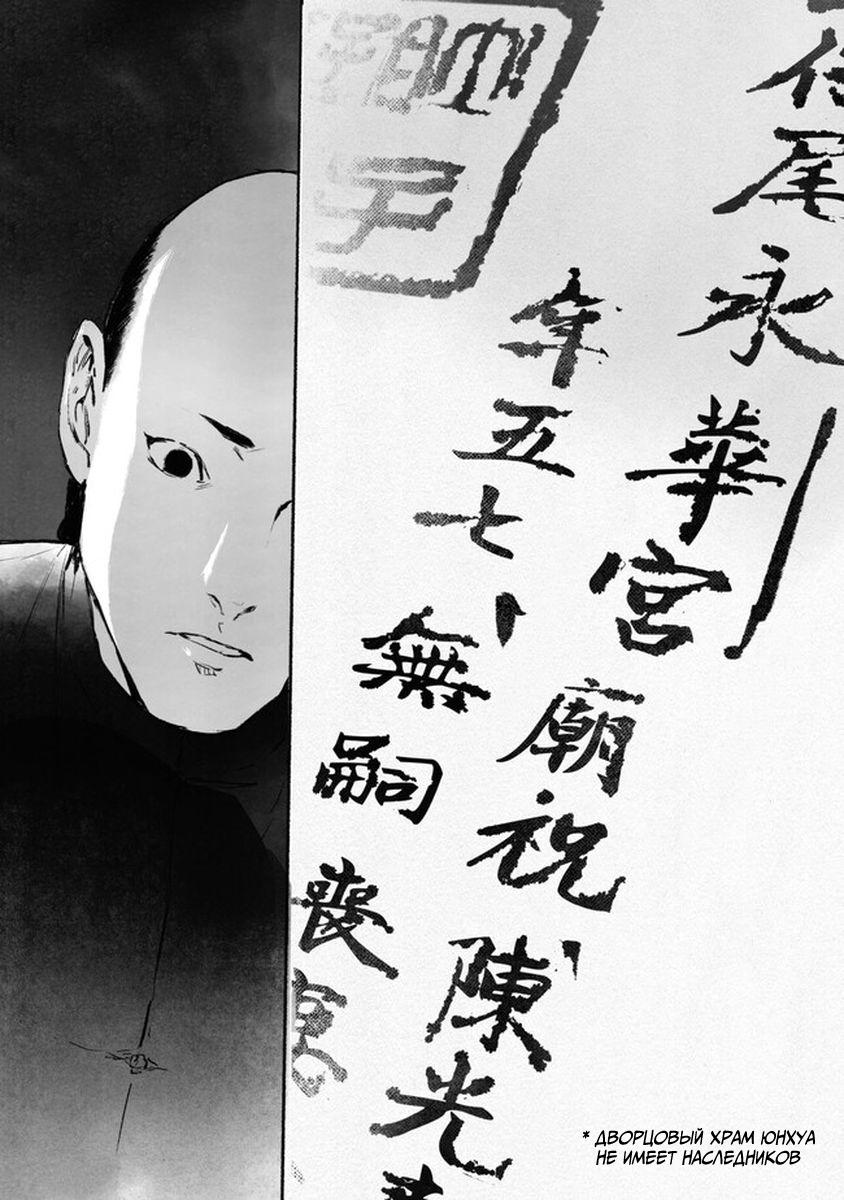 尾永華宮廟祝、陳光
年五七、無嗣喪
* ДВОРЦОВЫЙ ХРАМ ЮНХУА
НЕ ИМЕЕТ НАСЛЕДНИКОВ